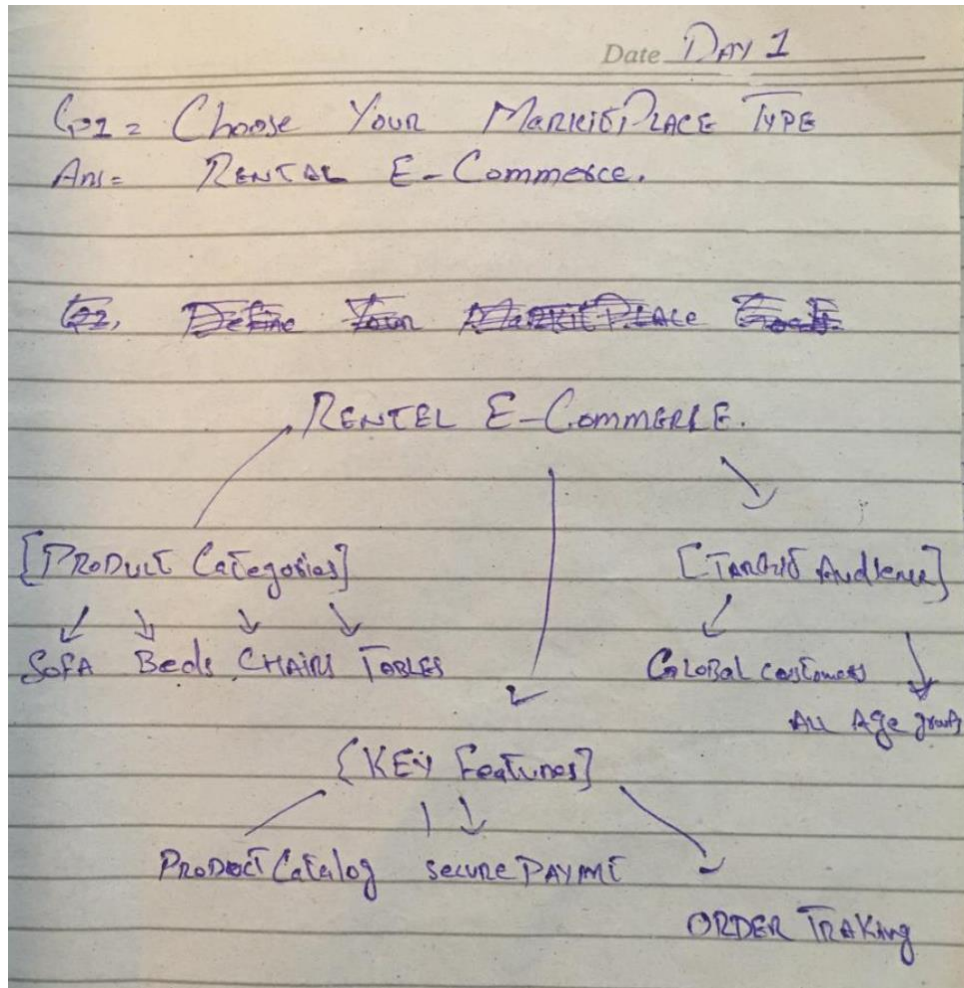 Date DAY 1
Q1 = Choose Your MARKITPLACE TYPE
Ans = RENTAL E-Commerce.
Q2, Define Your MARKITPLACE Goals
RENTEL E-COMMERCE.
[PRODUCT Categories] [TARGIT Audience]
SOFA Beds CHAIRS TABLES GLOBAL customers
ALL Age groups
[KEY Features]
PRODUCT Catalog secure PAYMNT
ORDER TRAKing